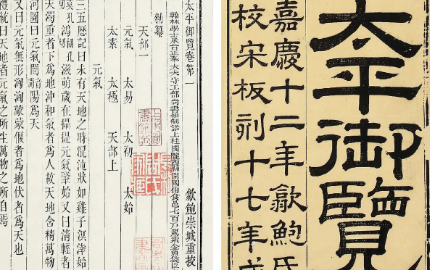 太平御覽
嘉慶十二年歙鮑氏
校宋板刻十七年成
太平御覽卷第一 歙鮑崇城重校
翰林學士承旨正奉大夫守工部尚書
敕纂
天部一
元氣 太易 太初 太始
太素 太極 天部上
元氣
三五歷記曰未有天地之時混沌狀如雞子溟涬始
濛鴻滋萌歲在攝提元氣肇始又曰清輕者
天濁重者下爲地沖和氣者爲人故天地含精萬物
河圖曰元氣闓陽爲天
又曰元氣無形洶洶蒙蒙偃者爲地伏者爲天也
禮統曰天地者元氣之所生萬物之所自焉